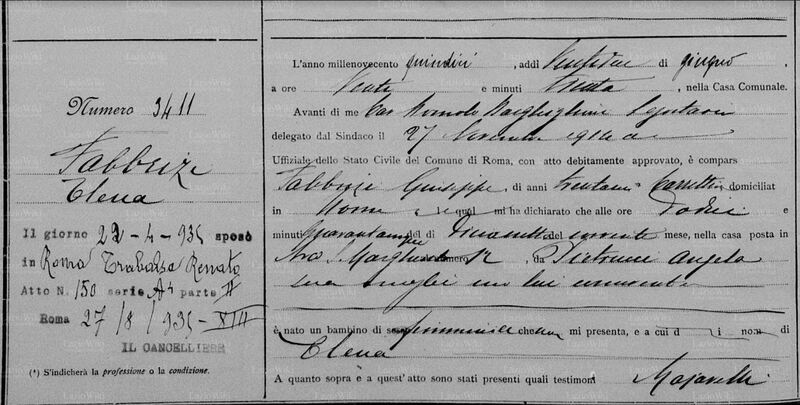 Numero 3411
Fabbrizi
Elena
Il giorno 22-4-935 sposò
in Roma Trabalza Renato
Atto N. 150 serie A' parte II
Roma 27/8/935-XIII
IL CANCELLIERE
(*) S'indicherà la professione o la condizione.
L'anno millenovecento quindici, addì Ventidue di giugno,
a ore Venti e minuti trenta, nella Casa Comunale.
Avanti di me Cav Romolo Segretario
delegato dal Sindaco il 27 Novembre
Uffiziale dello Stato Civile del Comune di Roma, con atto debitamente approvato, è compars
Fabbrizi Giuseppe, di anni domiciliat
in Roma, l qual mi ha dichiarato che alle ore Dodici e
minuti quarantacinque del dì Diciassette del corrente mese, nella casa posta in
Via S. Margherita numero 12, da Pietrucci Angela
sua moglie con lui convivente
è nato un bambino di sesso femminile che mi presenta, e a cui d i nom di
Elena
A quanto sopra e a quest'atto sono stati presenti quali testimoni